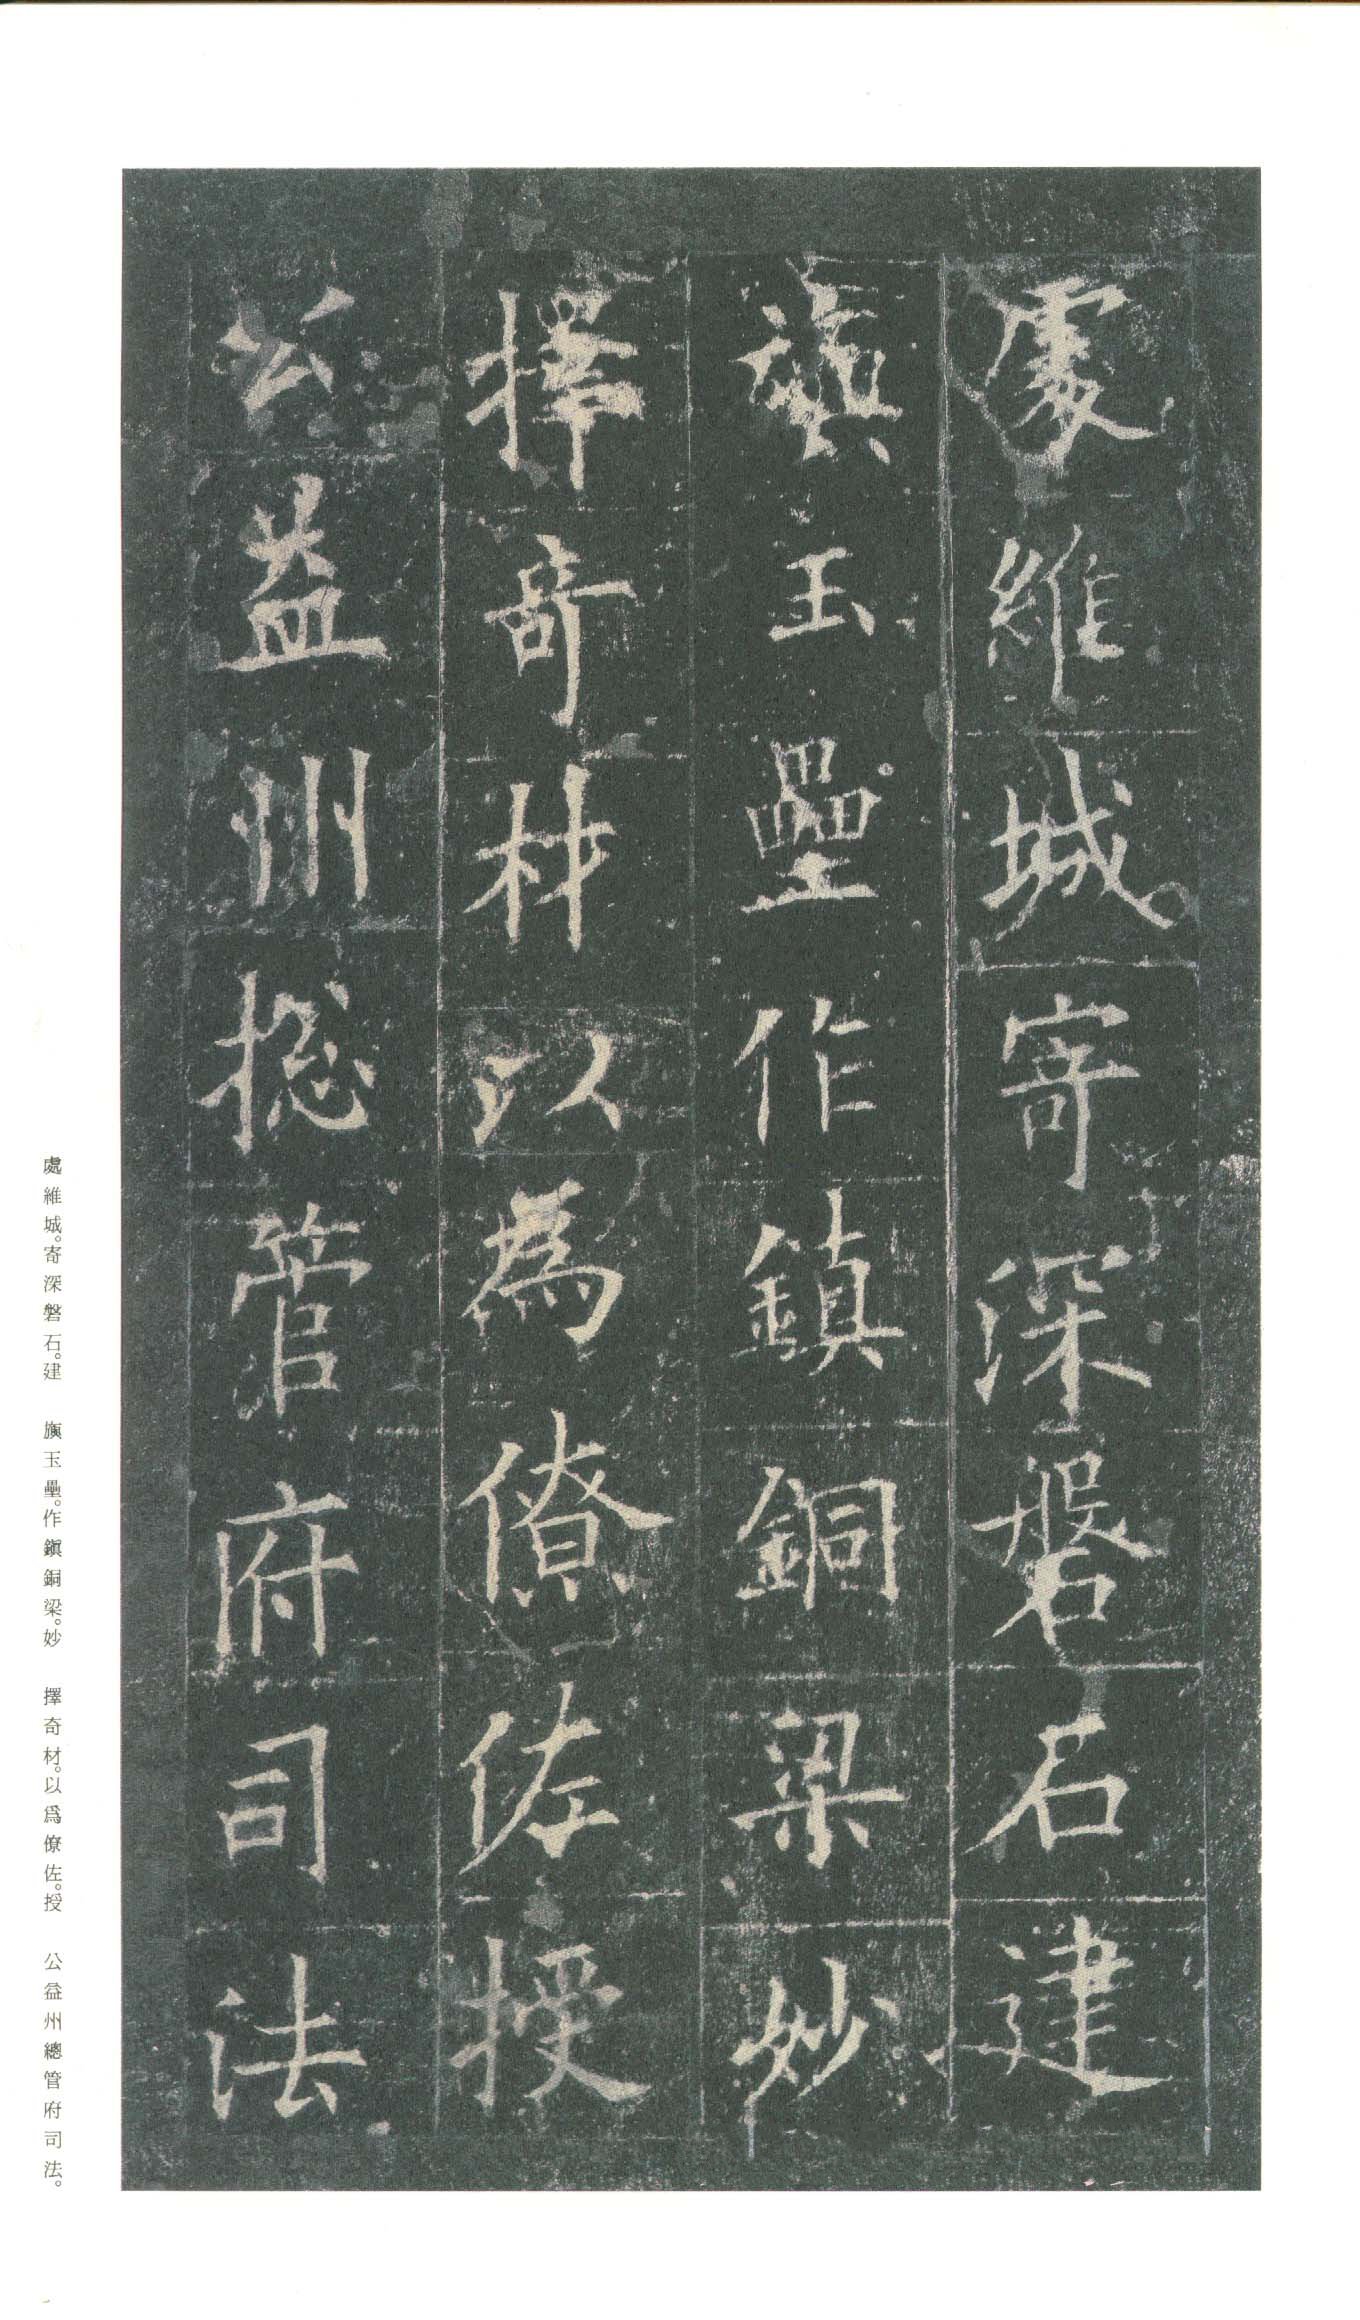 處維城寄深磐石建
旟玉壘作鎮銅梁妙
擇奇材以為僚佐授
公益州揔管府司法
處維城。寄深磐石。建 旟玉壘。作鎭銅梁。妙 擇奇材。以爲僚佐。授 公益州總管府司法。